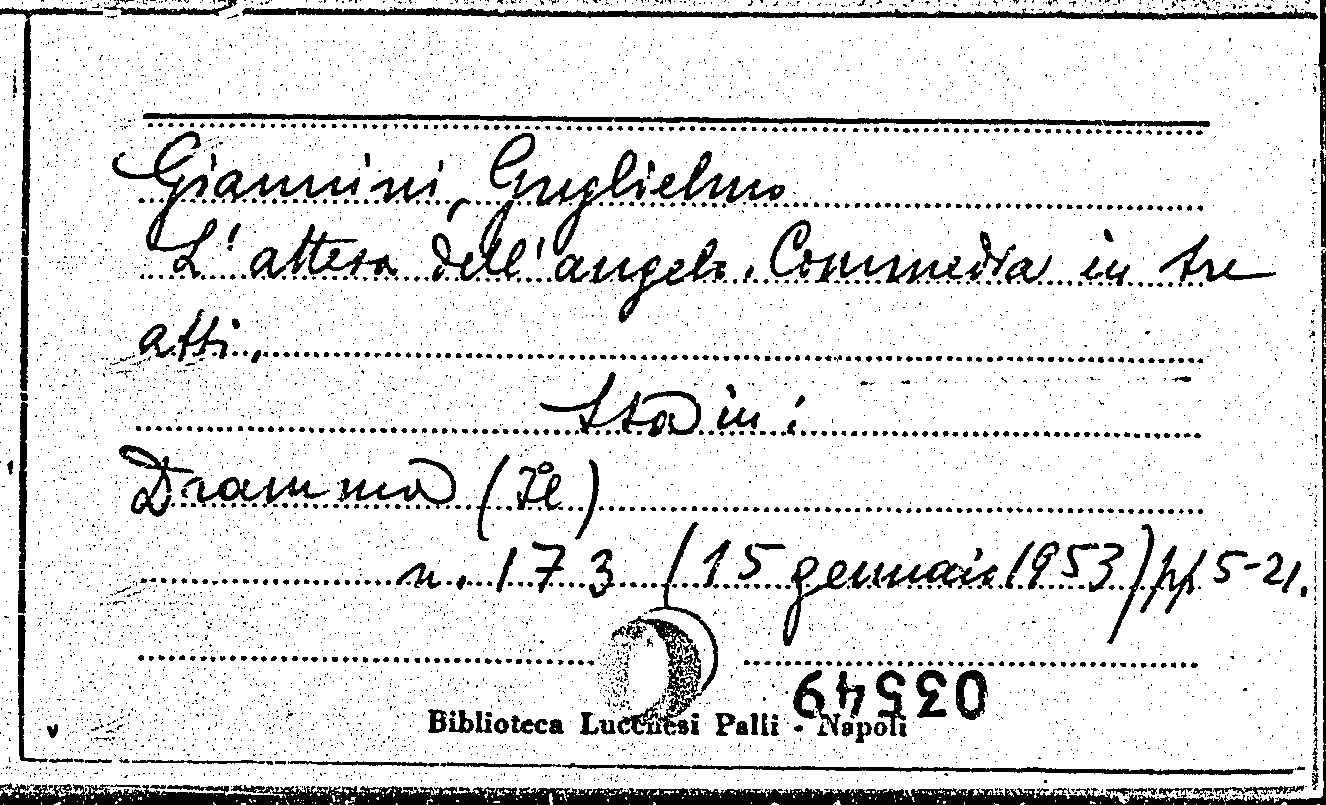 Giannini, Guglielmo
L'attesa dell'angelo. Commedia in tre
atti.
Sta in:
Dramma (Il)
n. 173 (15 gennaio 1953) pp 5-21.
03549
Biblioteca Lucchesi Palli - Napoli